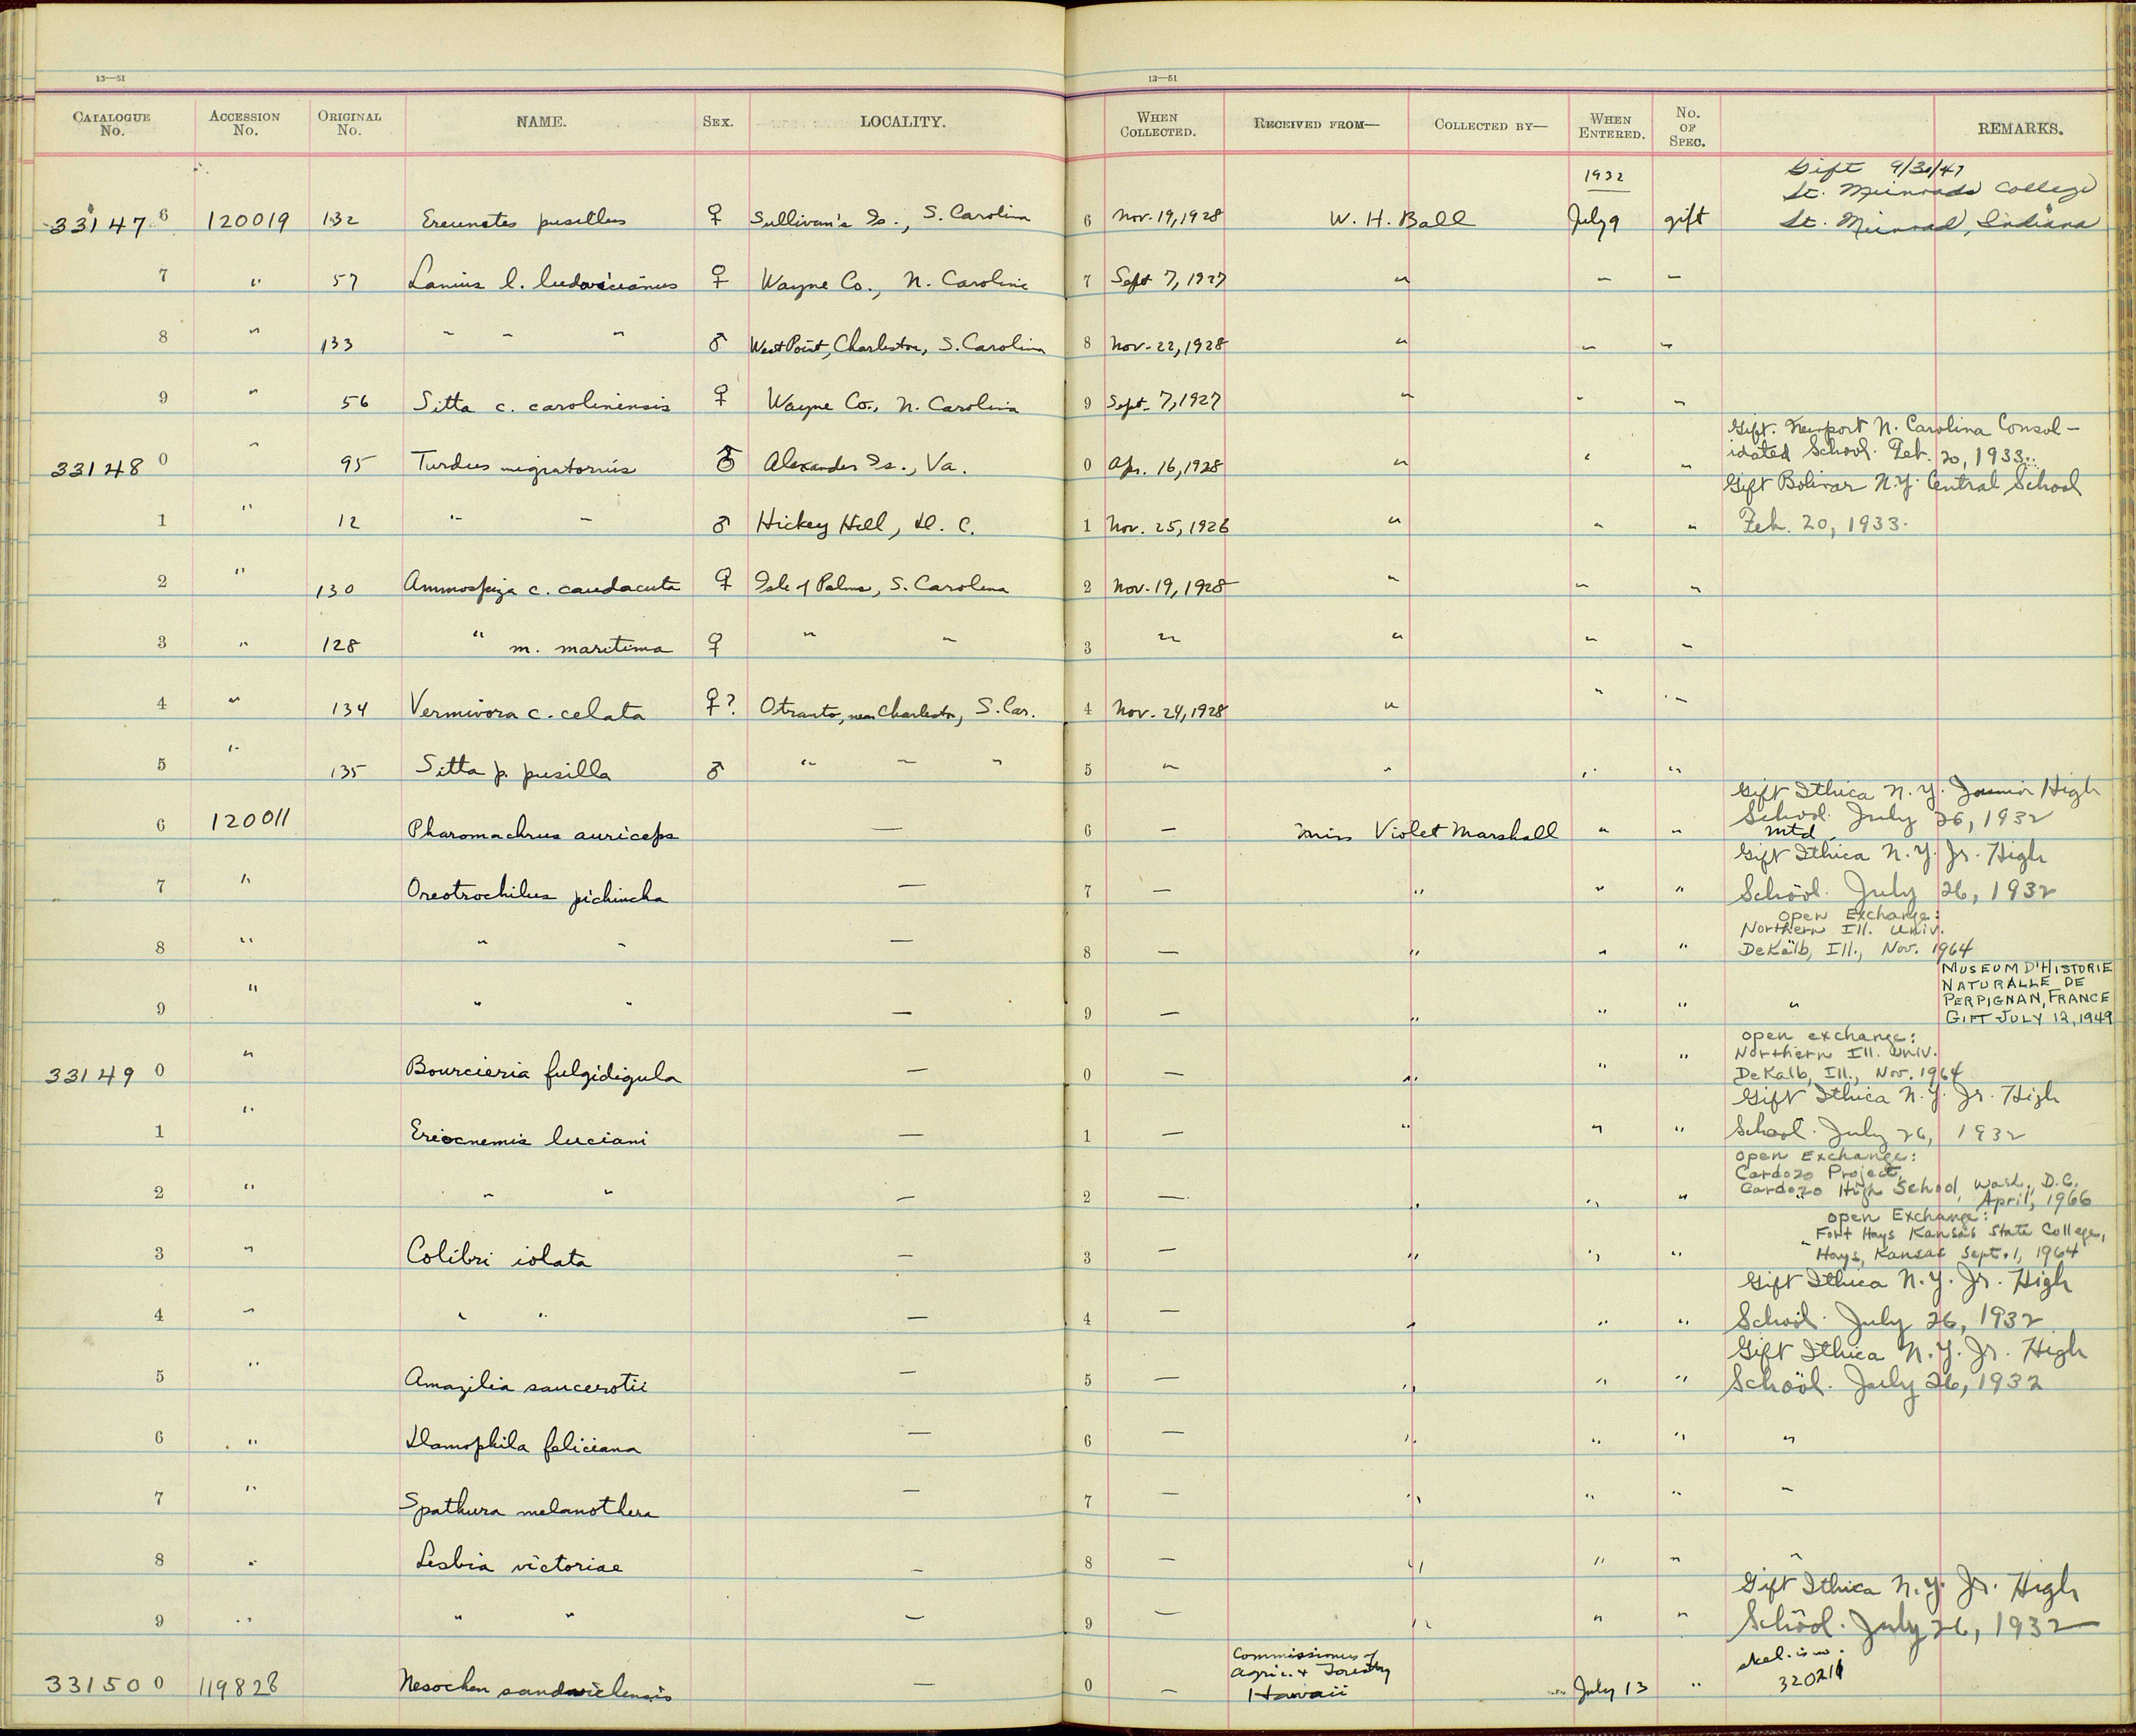 13—51 13—51
CATALOGUE No. ACCESSION No. ORIGINAL No. NAME. SEX. LOCALITY. WHEN COLLECTED. RECEIVED FROM— COLLECTED BY— WHEN ENTERED. No. OF SPEC. REMARKS.
1932 Gift 9/30/47
St. Meinrads College
331476 120019 132 Ereunetes pusillus ♀ Sullivan's Is., S. Carolina 6 Nov. 19, 1928 W. H. Ball July 9 gift St. Meinrad, Indiana
7 " 57 Lanius l. ludovicianus ♀ Wayne Co., N. Carolina 7 Sept 7, 1927 " " "
8 " 133 " " " ♂ West Point, Charleston, S. Carolina 8 Nov. 22, 1928 " " "
9 " 56 Sitta c. carolinensis ♀ Wayne Co., N. Carolina 9 Sept. 7, 1927 " " "
Gift. Newport N. Carolina Consol-
331480 " 95 Turdus migratorius ♂ Alexander Is., Va. 0 Apr. 16, 1928 " " " idated School. Feb. 20, 1933.
Gift Bolivar N.Y. Central School
1 " 12 " " ♂ Hickey Hill, D. C. 1 Nov. 25, 1926 " " " Feb. 20, 1933.
2 " 130 Ammospiza c. caudacuta ♀ Isle of Palms, S. Carolina 2 Nov. 19, 1928 " " "
3 " 128 " m. maritima ♀ " " 3 " " " "
4 " 134 Vermivora c. celata ♀? Otranto, near Charleston, S. Car. 4 Nov. 24, 1928 " " "
5 " 135 Sitta p. pusilla ♂ " " " 5 " " " "
Gift Ithica N.Y. Junior High
School. July 26, 1932
6 120011 Pharomachrus auriceps — 6 — Miss Violet Marshall " " mtd
Gift Ithica N.Y. Jr. High
7 " Oreotrochilus pichincha — 7 — " " " School. July 26, 1932
Open Exchange:
Northern Ill. Univ.
8 " " " — 8 — " " " DeKalb, Ill., Nov. 1964
MUSEUM D'HISTORIE
NATURALLE DE
PERPIGNAN, FRANCE
9 " " " — 9 — " " " " GIFT JULY 12, 1949
open exchange:
Northern Ill. Univ.
331490 " Bourcieria fulgidigula — 0 — " " " DeKalb, Ill., Nov. 1964
Gift Ithica N.Y. Jr. High
1 " Eriocnemis luciani — 1 — " " " School. July 26, 1932
Open Exchange:
Cardozo Project,
2 " " " — 2 — " " " Cardozo High School, Wash., D.C.
April, 1966
open Exchange:
Fort Hays Kansas State College,
3 " Colibri iolata — 3 — " " " " Hays, Kansas Sept. 1, 1964
Gift Ithica N.Y. Jr. High
4 " " " — 4 — " " " School. July 26, 1932
Gift Ithica N.Y. Jr. High
5 " Amazilia saucerotii — 5 — " " " School. July 26, 1932
6 " Damophila feliciana — 6 — " " " "
7 " Spathura melanothera — 7 — " " " "
8 " Lesbia victoriae — 8 — " " " "
Gift Ithica N.Y. Jr. High
9 " " " — 9 — " " " School. July 26, 1932
Commissioners of
Agric. & Forestry skel. is no.
331500 119828 Nesochen sandvicensis — 0 — Hawaii July 13 " 320214